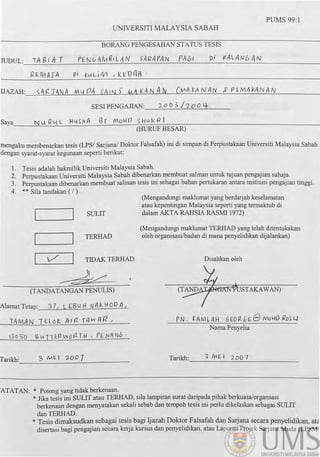 PUMS 99:1
UNIVERSITI MALAYSIA SABAH
BORANG PENGESAHAN STATUS TESIS
JUDUL: TABIAT PENGAMBILAN SARAPAN PAGI DI KALANGAN
REMAJA DI KULIM, KEDAH
IJAZAH: SARJANA MUDA SAINS MAKANAN (MAKANAN & PEMAKANAN
SESI PENGAJIAN: 2003/2004
Saya NURUL HUSNA BT MOHD SHUKRI
(HURUF BESAR)
mengaku membenarkan tesis (LPS/ Sarjana/ Doktor Falsafah) ini di simpan di Perpustakaan Universiti Malaysia Sabah
dengan syarat-syarat kegunaan seperti berikut:
1. Tesis adalah hakmilik Universiti Malaysia Sabah.
2. Perpustakaan Universiti Malaysia Sabah dibenarkan membuat salinan untuk tujuan pengajian sahaja.
3. Perpustakaan dibenarkan membuat salinan tesis ini sebagai bahan pertukaran antara institusi pengajian tinggi.
4. ** Sila tandakan ( / )
(Mengandungi maklumat yang berdarjah keselamatan
atau kepentingan Malaysia seperti yang termaktub di
SULIT dalam AKTA RAHSIA RASMI 1972)
(Mengandungi maklumat TERHAD yang telah ditentukakan
TERHAD oleh organisasi/badan di mana penyelidikan dijalankan)
✓ TIDAK TERHAD
Disahkan oleh
(TANDATANGAN PENULIS) (TANDATANGAN PUSTAKAWAN)
Alamat Tetap: 37, LEBUH NAKHODA,
TAMAN TELOK AIR TAWAR,
13050 BUTTERWORTH, PENANG.
PN. RAMLAH @ MOHD ROSLI
Nama Penyelia
Tarikh: 3 MEI 2007 Tarikh: 3 MEI 2007
CATATAN: * Potong yang tidak berkenaan.
* Jika tesis ini SULIT atau TERHAD, sila lampiran surat daripada pihak berkuasa/organsasi
berkenaan dengan menyatakan sekali sebab dan tempoh tesis ini perlu dikelaskan sebagai SULIT
dan TERHAD.
* Tesis dimaksudkan sebagai tesis bagi Ijazah Doktor Falsafah dan Sarjana secara penyelidikan, atau
disertasi bagi pengajian secara kerja kursus dan penyelidikan, atau Laporan Projek Sarjana Muda (LPSM)
UMS
UNIVERSITI MALAYSIA SABAH